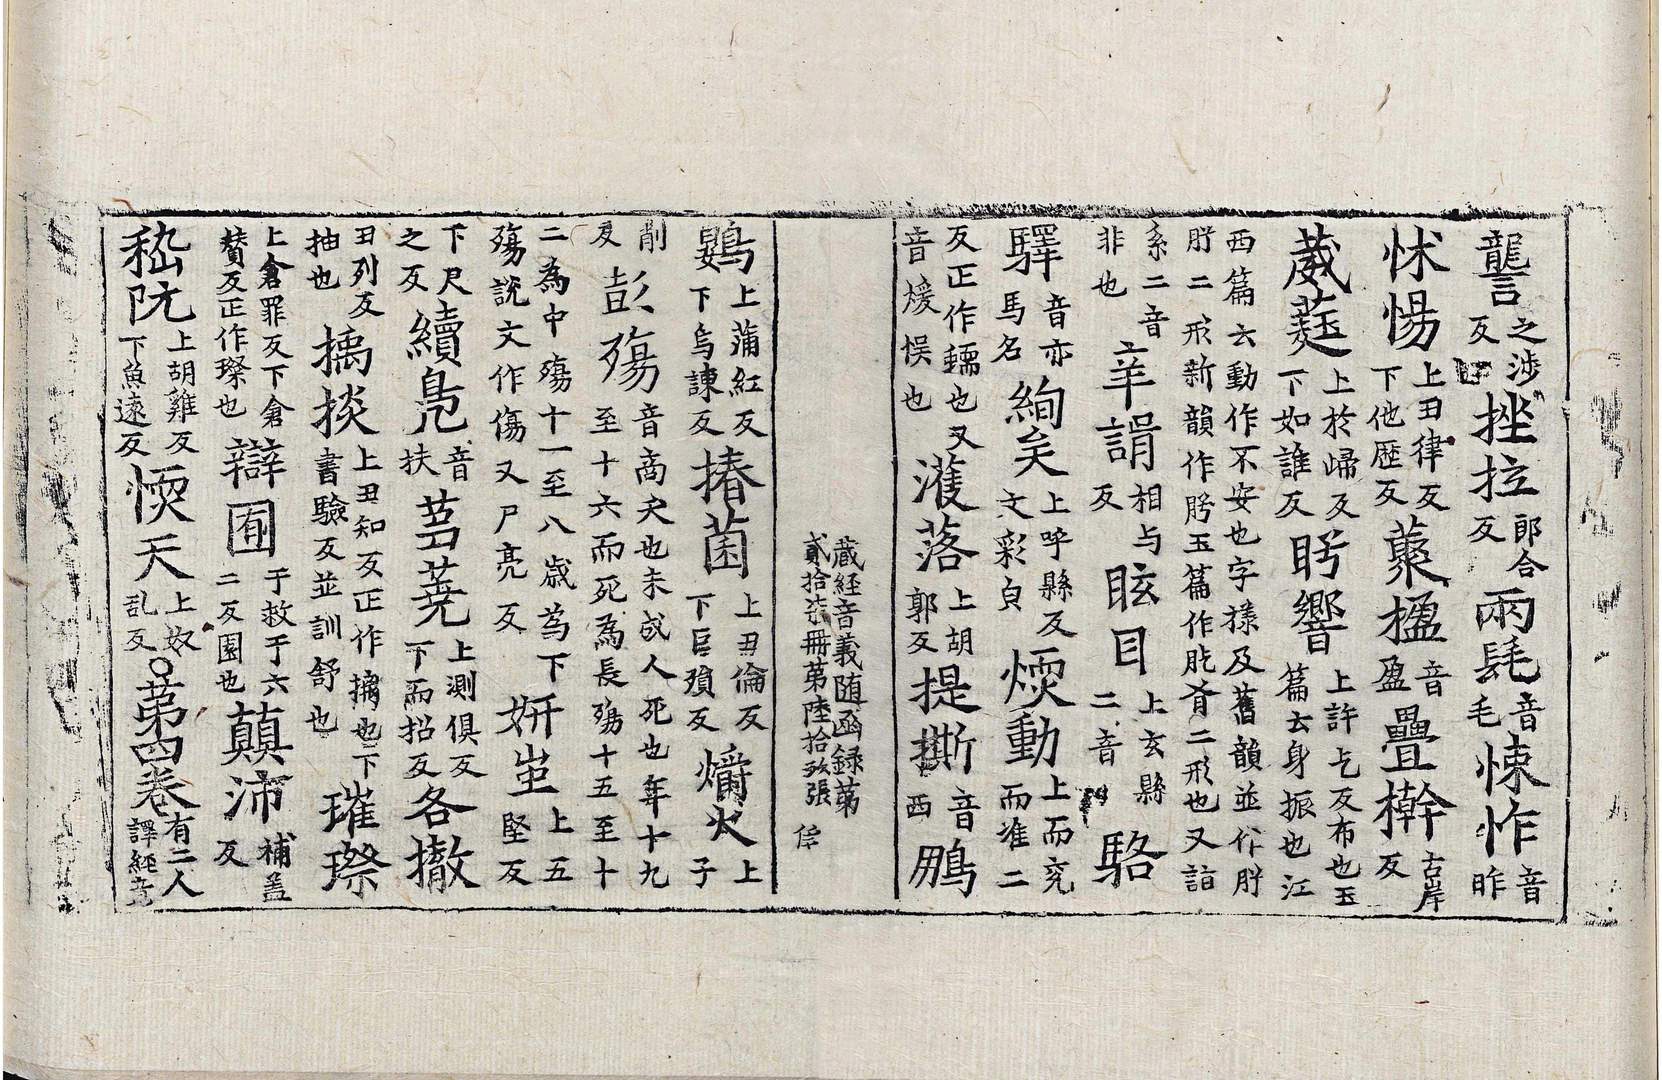 讋之涉反挫拉郎合反兩髦音毛悚怍音昨
怵惕上丑律反下他歷反藂楹音盈疊榦古岸反
葳蕤上於歸反下如誰反肹響上許乞反布也玉篇云身振也江
西篇云動作不安也字㨾及舊韻並作肸
肸二形新韻作肹玉篇作肐㕙二形也又詣
系二音非也辛諝相与反眩目上玄縣二音駱
驛音亦馬名絢矣上呼縣反文彩皃煗動上而兖而准二
反正作蠕也又音煖悮也濩落上胡郭反提撕音西鵬
藏経音義随函録第貳拾柒冊第陸拾玖張
鷃上蒲紅反下烏諫反椿菌上丑倫反下巨殞反爝火上子
削反彭殤音商夭也未成人死也年十九至十六而死為長殤十五至十
二為中殤十一至八歲為下殤說文作傷又尸亮反妍蚩上五堅反
下尺之反續鳧音扶蒭蕘上測俱反下而招反各撤
丑列反抽也摛掞上丑知反正作摛也下書驗反並訓舒也璀璨
上倉罪反下倉贊反正作璨也辯囿于救于六二反園也顛沛補盖反
嵇阮上胡雞反下魚遠反愞夭上奴乱反○第四卷有二人譯經音